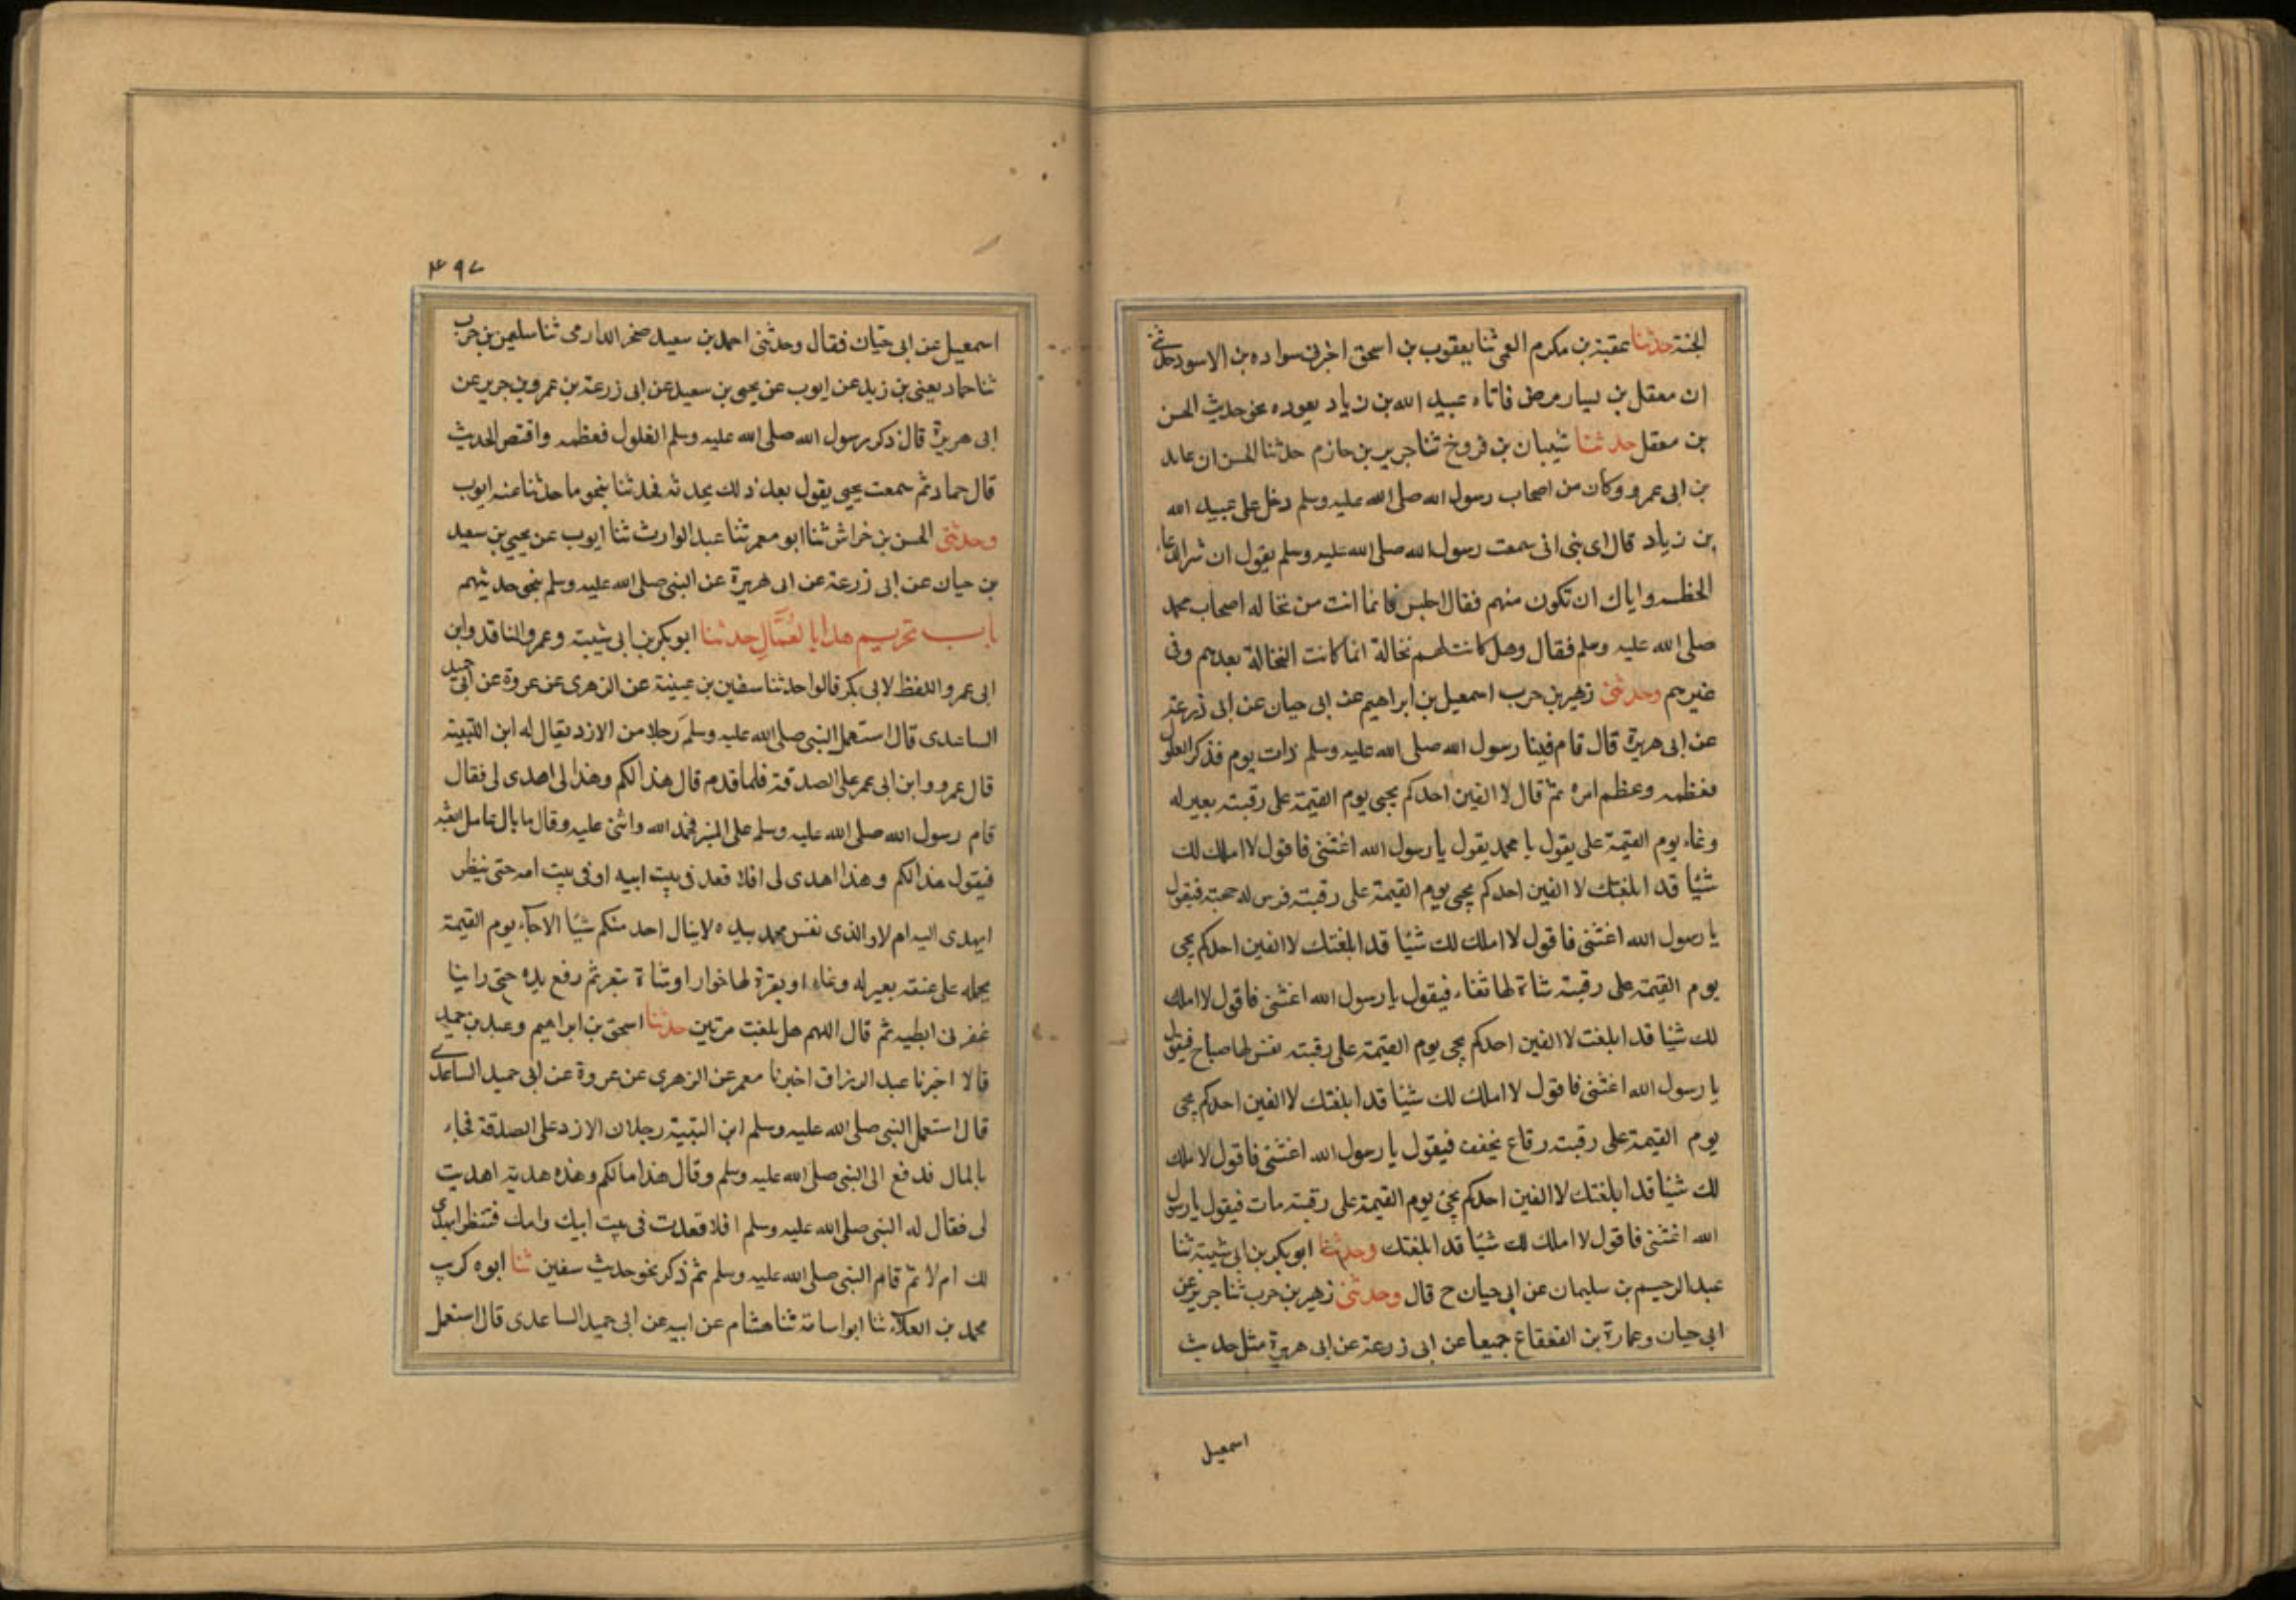 الجنة حدثنا عقبة بن مكرم العمى ثنا يعقوب بن اسحق اخبرنى سواده بن الاسود حدثنى
ان معقل بن يسار مرض فاتاه عبيد الله بن زياد يعوده نحو حديث الحسن
بن معقل حدثنا شيبان بن فروخ ثنا جرير بن حازم حدثنا الحسن ان عابد
بن ابى عمرو وكان من اصحاب رسول الله صلى الله عليه وسلم دخل على عبيد الله
بن زياد قال اى بنى انى سمعت رسول الله صلى الله عليه وسلم يقول ان شر الرعاء
الحظمه واياك ان تكون منهم فقال اجلس فانما انت من نخاله اصحاب محمد
صلى الله عليه وسلم فقال وهل كانت لهم نخالة انما كانت النخالة بعدهم وفى
غيرهم وحدثنى زهير بن حرب اسمعيل بن ابراهيم عن ابى حيان عن ابى زرعة
عن ابى هريرة قال قام فينا رسول الله صلى الله عليه وسلم ذات يوم فذكر الغلول
فعظمه وعظم امره ثم قال لا الفين احدكم يجيى يوم القيمة على رقبته بعير له
رغاء يوم القيمة على يقول يا محمد يقول يا رسول الله اغثنى فاقول لا املك لك
شيئا قد ابلغتك لا الفين احدكم يجيى يوم القيمة على رقبته فرس له حمحمة فيقول
يا رسول الله اغثنى فاقول لا املك لك شيئا قد ابلغتك لا الفين احدكم يجى
يوم القيمة على رقبته شاة لها ثغاء فيقول يا رسول الله اغثنى فاقول لا املك
لك شيئا قد ابلغت لا الفين احدكم يجى يوم القيمة على رقبته نفس لها صياح فيقول
يا رسول الله اغثنى فاقول لا املك لك شيئا قد ابلغتك لا الفين احدكم يجى
يوم القيمة على رقبته رقاع تخفف فيقول يا رسول الله اغثنى فاقول لا املك
لك شيئا قد ابلغتك لا الفين احدكم يجئ يوم القيمة على رقبته مات فيقول يا رسول
الله اغثنى فاقول لا املك لك شيئا قد ابلغتك وحدثنا ابو بكر بن ابى شيبة ثنا
عبد الرحيم بن سليمان عن ابى حيان ح قال وحدثنى زهير بن حرب ثنا جرير عن
ابى حيان وعمارة بن القعقاع جميعا عن ابى زرعة عن ابى هريرة مثل حديث
اسمعيل
٤٩٧
اسمعيل عن ابى حيان فقال وحدثنى احمد بن سعيد صخر الدارمى ثنا سليمن بن حرب
ثنا حماد يعنى بن زيد عن ايوب عن يحيى بن سعيد عن ابى زرعة بن عمرو بن جرير عن
ابى هريرة قال ذكر رسول الله صلى الله عليه وسلم الغلول فعظمه واقتص الحديث
قال حماد ثم سمعت يحيى يقول بعد ذلك يحدثه فحدثنا بنحو ما حدثنا عنه ايوب
وحدثنى الحسن بن خراش ثنا ابو معمر ثنا عبد الوارث ثنا ايوب عن يحيى بن سعيد
بن حيان عن ابى زرعة عن ابى هريرة عن النبى صلى الله عليه وسلم بنحو حديثهم
باب تحريم هدايا لعُمَّالِ حدثنا ابو بكر بن ابى شيبة وعمرو الناقد وابن
ابى عمر واللفظ لابى بكر قالوا حدثنا سفين بن عيينة عن الزهرى عن عروة عن ابى حميد
الساعدى قال استعمل النبى صلى الله عليه وسلم رجلا من الازد يقال له ابن اللتبية
قال عمرو وابن ابى عمر على الصدقة فلما قدم قال هذا لكم وهذا لى اهدى لى فقال
قام رسول الله صلى الله عليه وسلم على المنبر فحمد الله واثنى عليه وقال ما بال عامل ابعثه
فيقول هذا لكم وهذا اهدى لى افلا قعد فى بيت ابيه او فى بيت امه حتى ينظر
ايهدى اليه ام لا والذى نفس محمد بيده لا ينال احد منكم شيئا الا جاء يوم القيمة
يحمله على عنقه بعير له رغاء او بقرة لها خوار او شاة تيعر ثم رفع يده حتى راينا
عفرتى ابطيه ثم قال اللهم هل بلغت مرتين حدثنا اسحق بن ابراهيم وعبد بن حميد
قالا اخبرنا عبد الرزاق اخبرنا معمر عن الزهرى عن عروة عن ابى حميد الساعدى
قال استعمل النبى صلى الله عليه وسلم ابن التبية رجلا ن الازد على الصدقة فجاء
بالمال فدفع الى النبى صلى الله عليه وسلم وقال هذا مالكم وهذه هدية اهديت
لى فقال له النبى صلى الله عليه وسلم افلا قعدت فى بيت ابيك وامك فتنظر ايهدى
لك ام لا ثم قام النبى صلى الله عليه وسلم ثم ذكر نحو حديث سفين ثنا ابوه كريب
محمد بن العلاء ثنا ابو اسامة ثنا هشام عن ابيه عن ابى حميد الساعدى قال استعمل